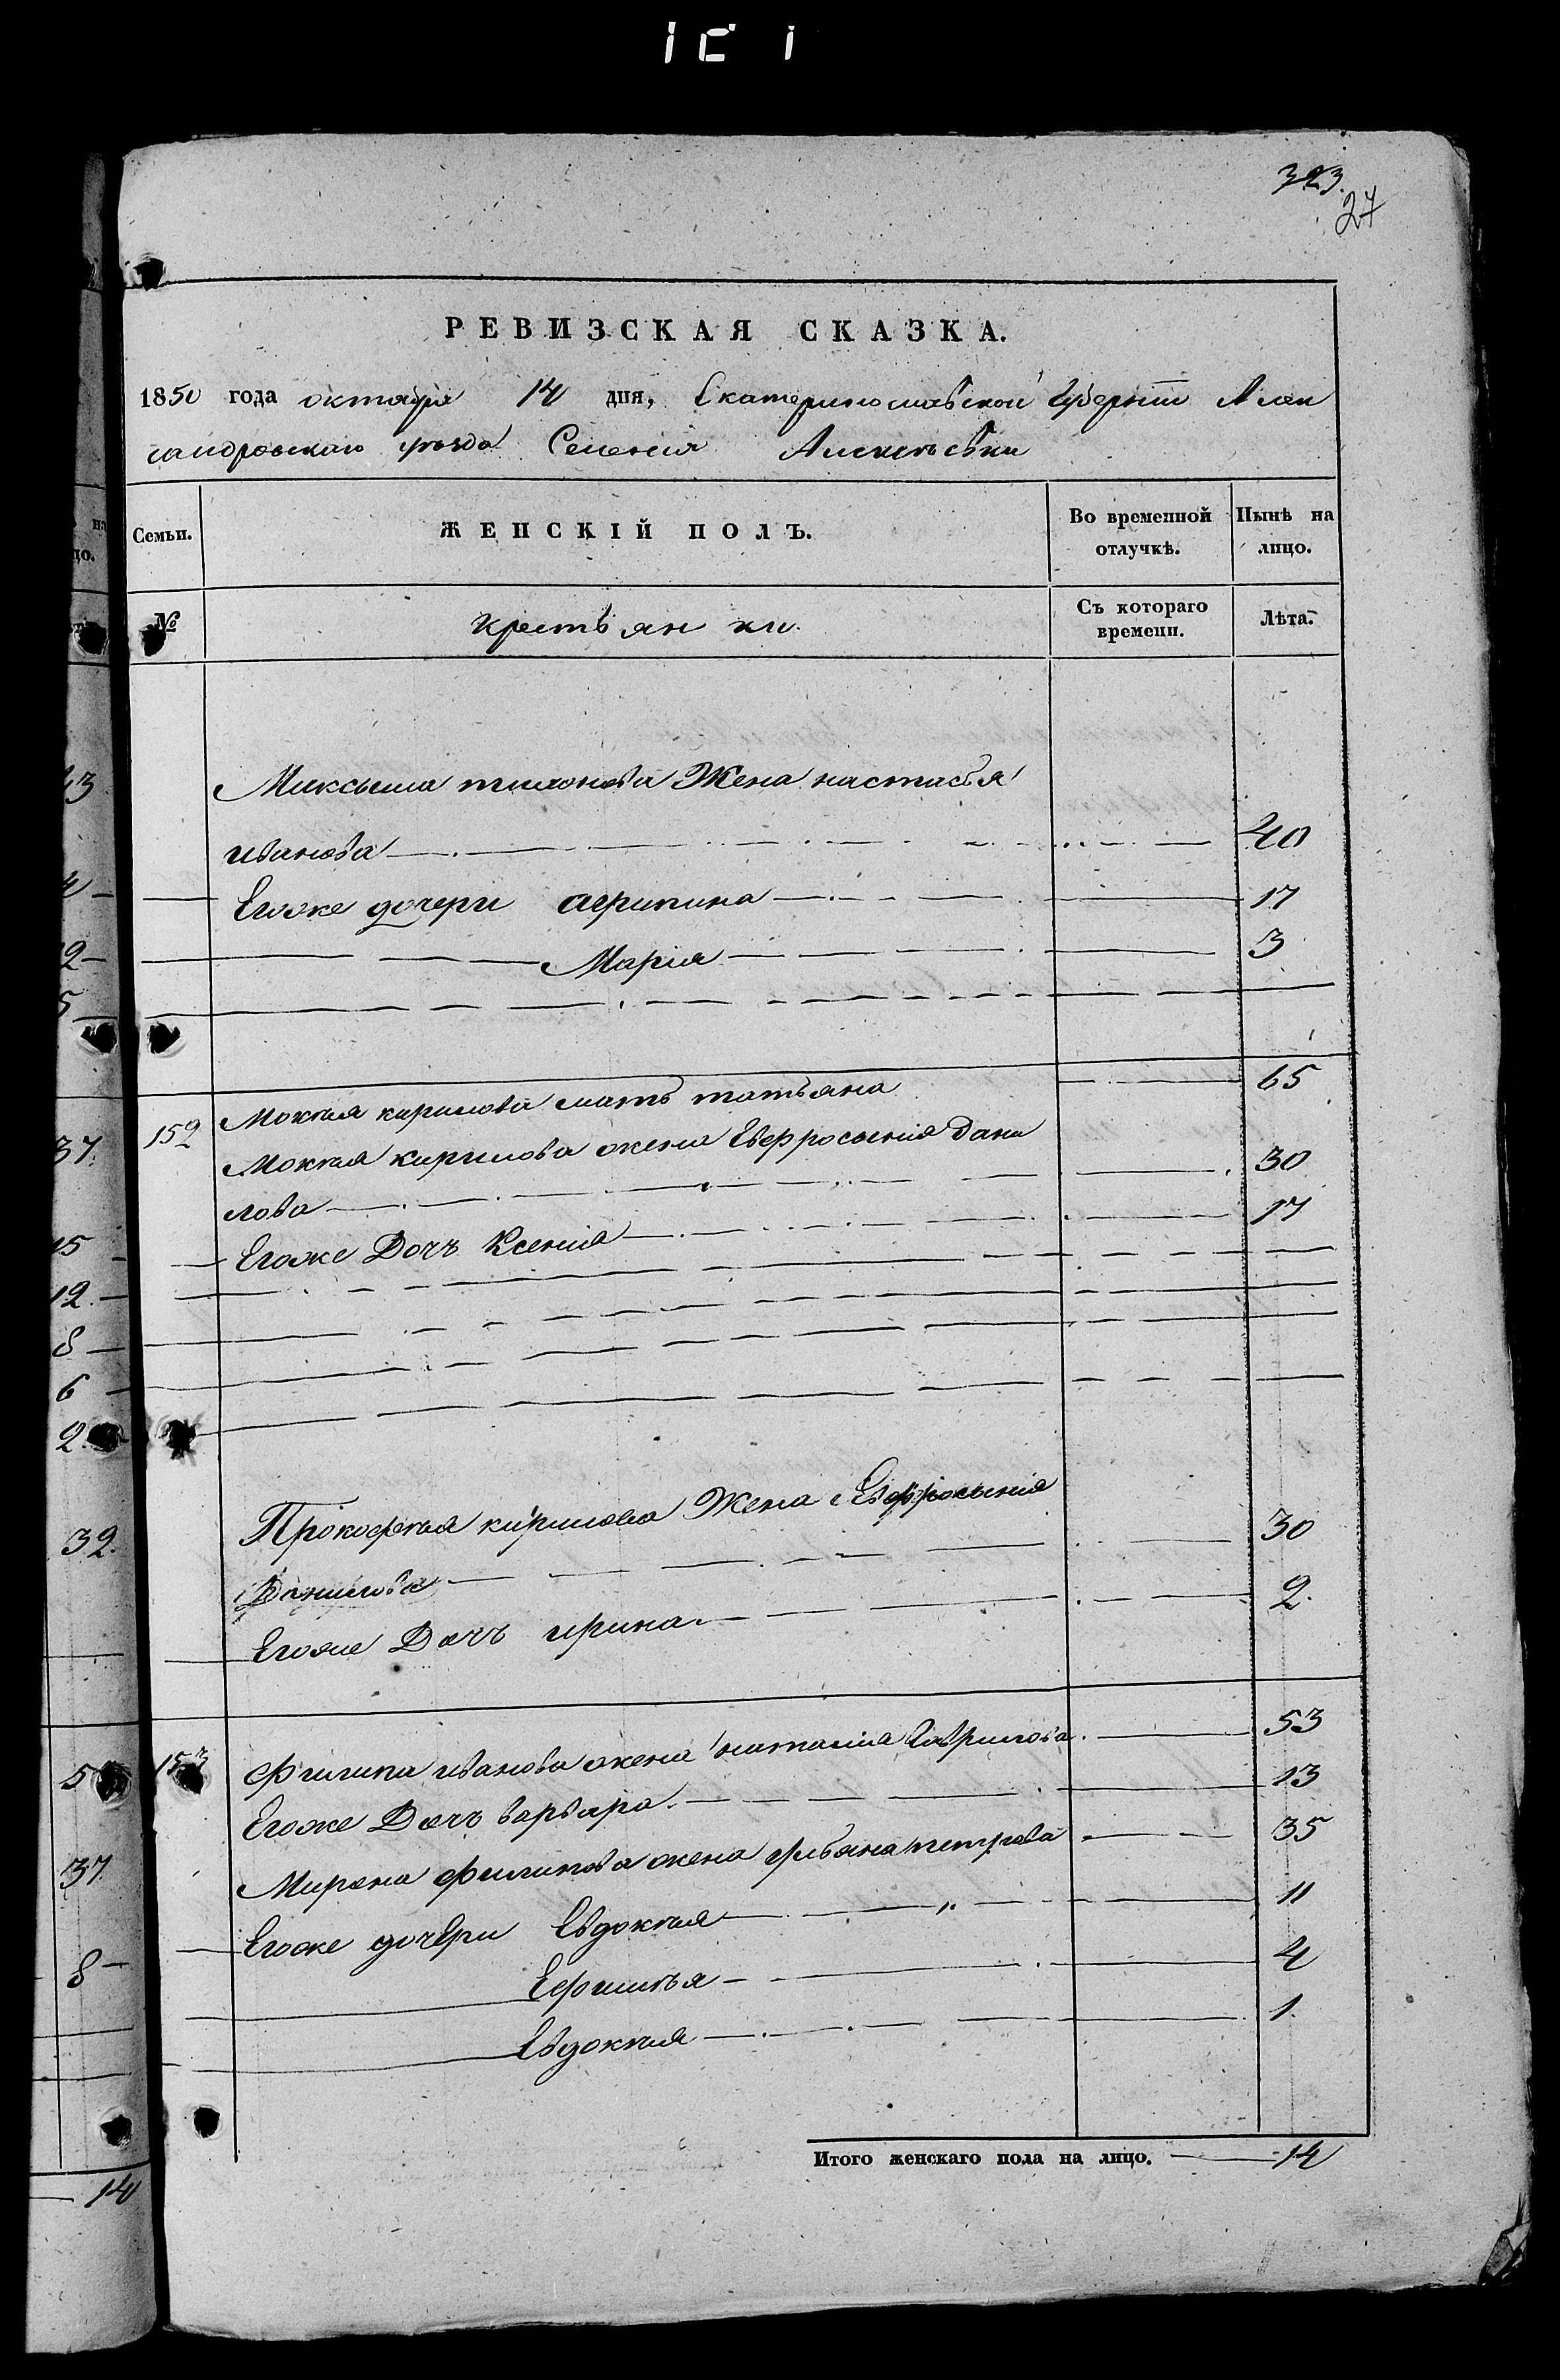 323.
27
РЕВИЗСКАЯ СКАЗКА.
1850 года октября 14 дня, Екатеринославской Губернiи Алек
сандровскаго уѣзда Селенiя Алексѣевки
Семьи.
ЖЕНСКІЙ ПОЛЪ.
Во временной отлучкѣ.
Нынѣ на лицо.
№
крестьянки.
Съ котораго времени.
Лѣта.
Максыма тихонова Жена настасья
иванова 40
Егоже дочери агрипина 17
Марiя 3
152 Мокѣя кирилова мать татьяна 65
Мокѣя кирилова жена Евфросынiя Дани
лова 30
Егоже Дочь Ксенiя 17
Прокофѣя кирилова Жена Евфросынiя
Данилова 30
Егоже Дочь ирина 2.
153 Филипа иванова жена наталiя Гаврилова 53
Егоже Дочь варвара 13
Мирона Филипова жена ульяна петрова 35
Егоже дочери Евдокѣя 11
Ефимѣя 4
Евдокѣя 1.
Итого женскаго пола на лицо. 14
23
4
2
5
37.
15
12.
8
6
2.
32.
5
37.
8
14